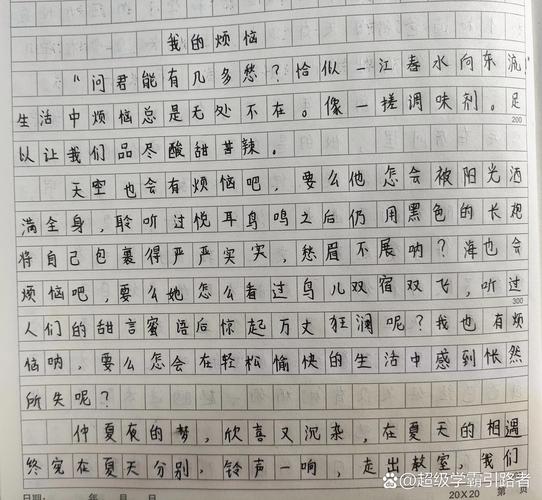 我的烦恼
“问君能有几多愁?恰似一江春水向东流”
生活中烦恼总是无处不在。像一搓调味剂。足
200
以让我们品尽酸甜苦辣。
天空也会有烦恼吧,要么他怎会被阳光洒
满全身,聆听过悦耳鸟鸣之后仍用黑色的长袍
将自己包裹得严严实实,愁眉不展呐?海也会
烦恼吧,要么她怎么看过鸟儿双宿双飞,听过
300
人们的甜言蜜语后惊起万丈狂澜呢?我也有烦
恼呐,要么怎会在轻松愉快的生活中感到怅然
所失呢?
仲夏夜的梦,欣喜又沉杂,在夏天的相遇
终究在夏天分别,铃声一响,走出教室,我们
日期: 年 月 日 20×20 第 页
@超级学霸引路者